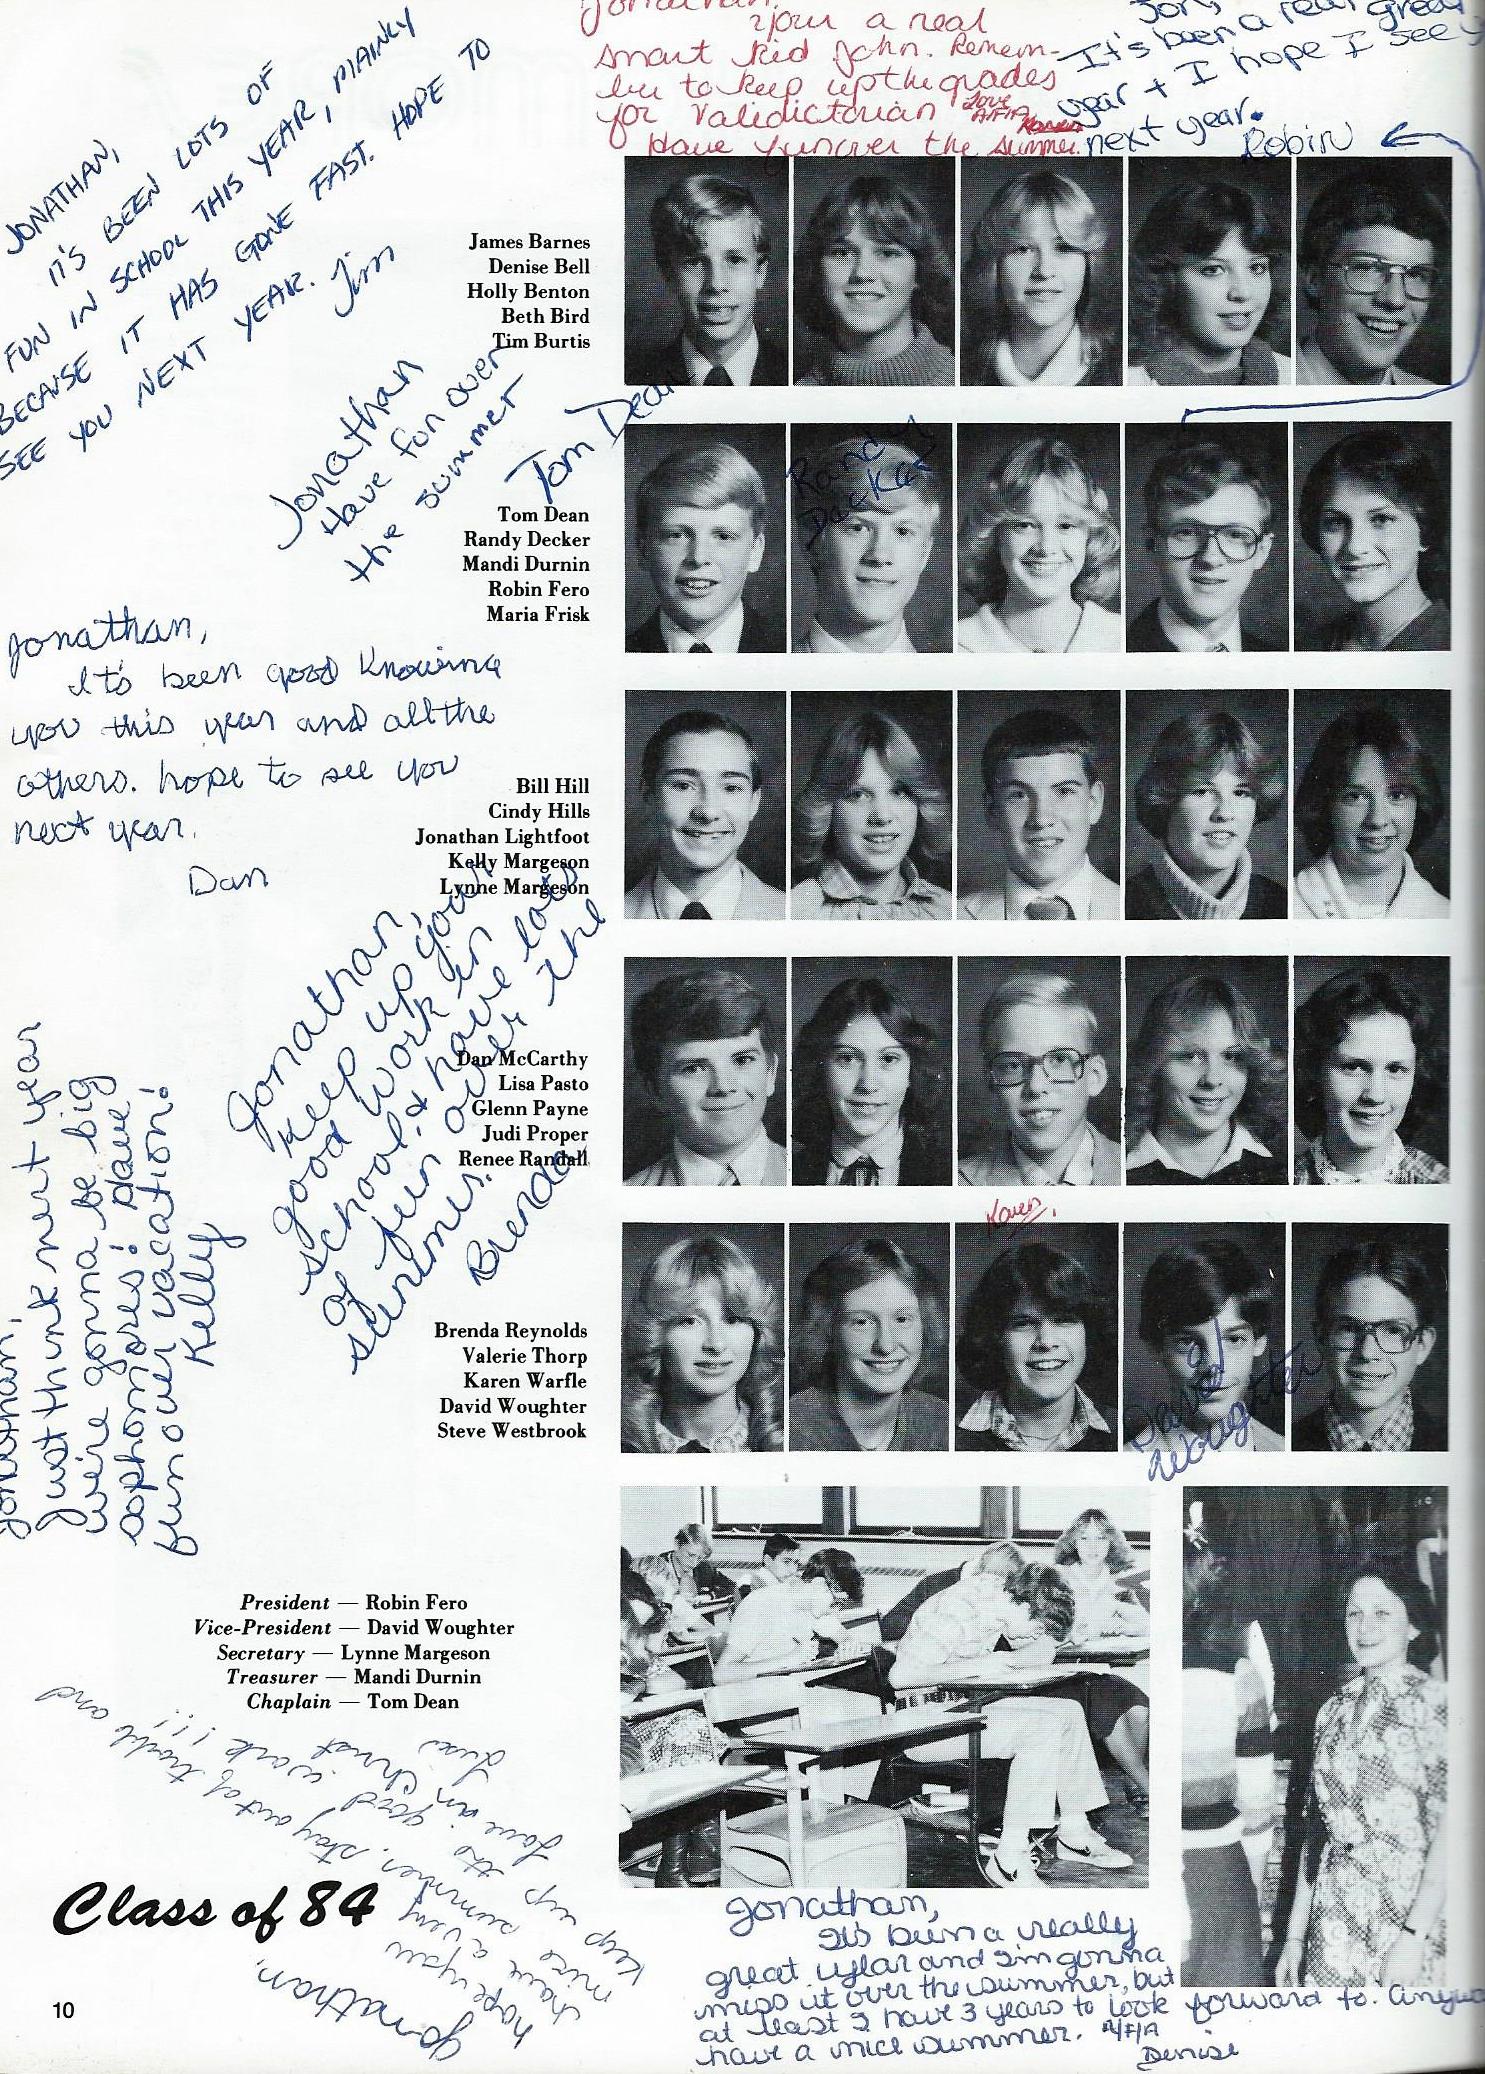 Jonathan.
Your a real
smart kid John. Remem-
ber to keep up the grades
for Validictorian Love
A/F/A Karen
Have fun over the summer.
Jon,
It's been a real great
year + I hope I see y
next year.
Robin
JONATHAN,
IT'S BEEN LOTS OF
FUN IN SCHOOL THIS YEAR, MAINLY
BECAUSE IT HAS GONE FAST. HOPE TO
SEE YOU NEXT YEAR. Jim
James Barnes
Denise Bell
Holly Benton
Beth Bird
Tim Burtis
Jonathan
Have fun over
the summer
Tom Dean
Tom Dean
Randy Decker
Mandi Durnin
Robin Fero
Maria Frisk
Randy
Decker
Jonathan,
It's been good knowing
you this year and all the
others. hope to see you
next year.
Dan
Bill Hill
Cindy Hills
Jonathan Lightfoot
Kelly Margeson
Lynne Margeson
Jonathan,
Keep up your
good work in
school & have lots
of fun over the
summer.
Brenda
Dan McCarthy
Lisa Pasto
Glenn Payne
Judi Proper
Renee Randall
Jonathan,
Just think next year
we're gonna be big
sophomores! Have
fun over vacation!
Kelly
Karen
Brenda Reynolds
Valerie Thorp
Karen Warfle
David Woughter
Steve Westbrook
David
Woughter
President — Robin Fero
Vice-President — David Woughter
Secretary — Lynne Margeson
Treasurer — Mandi Durnin
Chaplain — Tom Dean
Jonathan,
hope you
have a very
nice summer, stay out of trouble and
keep up the good work!!!
Love in Christ
Lisa
Class of 84
10
Jonathan,
It's been a really
great year and I'm gonna
miss it over the summer, but
at least I have 3 years to look forward to. Anyway
have a nice summer. A/F/A
Denise